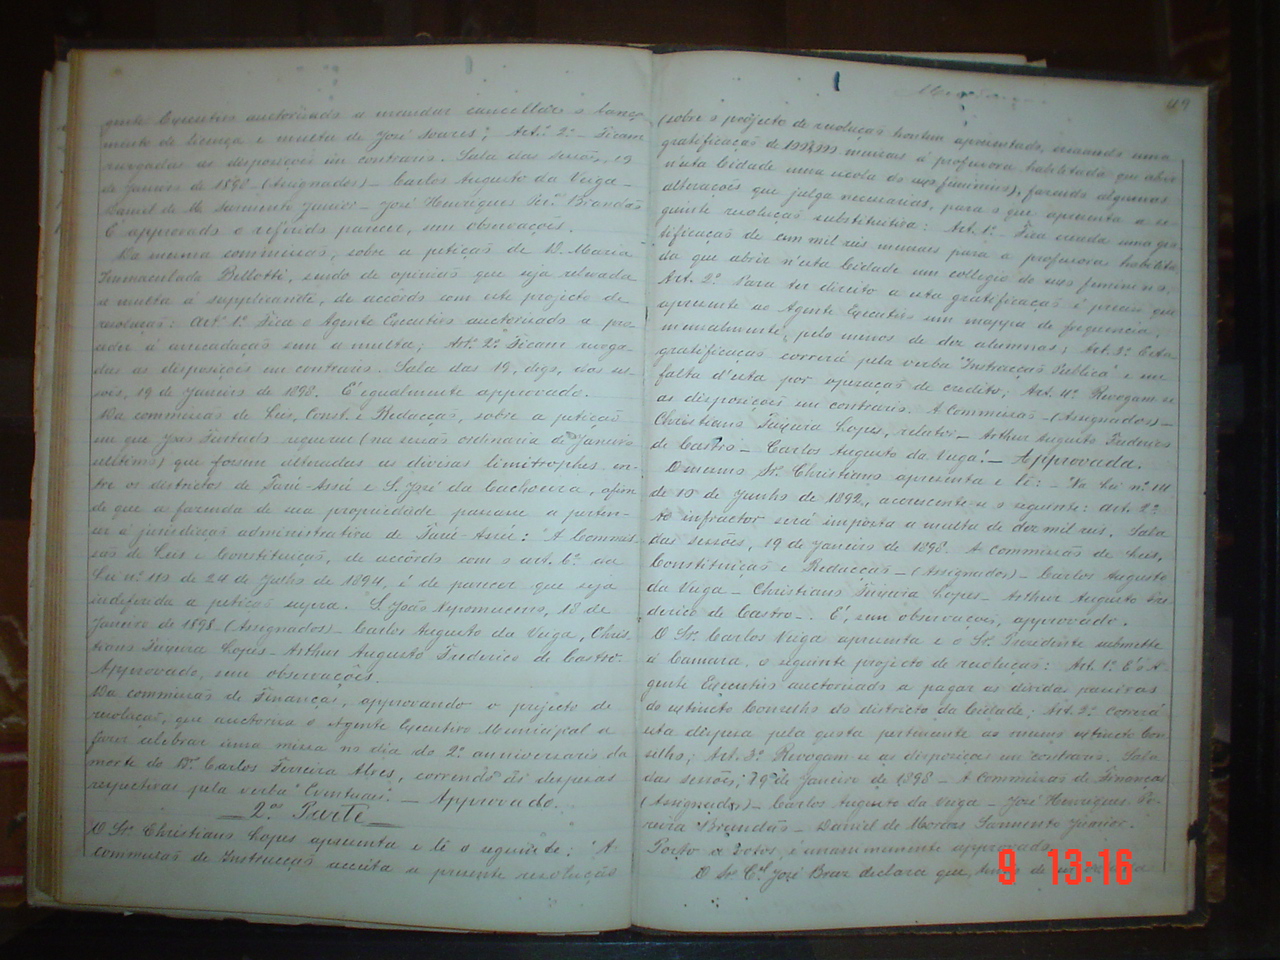 gente Executivo auctorisado a mandar cancellar o lança-
mento de licença e multa de José Soares; Art.º 2º - Ficam
revogadas as disposições em contrario. Sala das sessões, 19
de Janeiro de 1898 (Assignados) - Carlos Augusto da Veiga -
Daniel de M. Sarmento Junior - José Henriques Per.ª Brandão
É approvado o referido parecer, sem observações.
Da mesma commissão, sobre a petição de D. Maria
Immaculada Bellotti, sendo de opinião que seja relevada
a multa á supplicante, de accôrdo com este projecto de
resolução: Art.º 1º Fica o Agente Executivo auctorisado a pro-
ceder á arrecadação sem a multa; Art.º 2º Ficam revoga-
das as disposições em contrario. Sala das 19, digo, das ses-
sões, 19 de Janeiro de 1898. É egualmente approvado.
Da commissão de Leis, Const. e Redacção, sobre a petição
em que José Furtado requereu (na sessão ordinaria de Janeiro
ultimo) que fossem alteradas as divisas limitrophes en-
tre os districtos de Tarú-Assú e S. José da Cachoeira, afim
de que a fazenda de sua propriedade passasse a perten-
cer á jurisdicção administrativa de Tarú-Assú: "A Commis-
são de Leis e Constituição, de accôrdo com o art. 6º da
Lei nº 110 de 24 de Julho de 1894, é de parecer que seja
indeferida a petição supra." S. João Nepomuceno, 18 de
Janeiro de 1898 (Assignados) - Carlos Augusto da Veiga, Chris-
tiano Teixeira Lopes - Arthur Augusto Frederico de Castro.
Approvado, sem observações.
Da commissão de Finanças, approvando o projecto de
resolução, que auctorisa o Agente Executivo Municipal a
fazer celebrar uma missa no dia do 2º anniversario da
morte do Dr. Carlos Ferreira Alves, correndo as despesas
respectivas pela verba "Eventuaes". - Approvado.
2ª Parte
O Sr. Christiano Lopes apresenta e lê o seguinte: "A
commissão de Instrucção acceita a presente resolução
49
(sobre o projecto de resolução hontem apresentado, creando uma
gratificação de mensaes á professora habilitada que abrir
n'esta Cidade uma escola do sexo feminino), fazendo algumas
alterações que julga necessarias, para o que apresenta a se-
guinte resolução substitutiva: Art. 1º Fica creada uma gra-
tificação de cem mil reis mensaes para a professora habilita-
da que abrir n'esta Cidade um collegio do sexo feminino.
Art. 2º Para ter direito a esta gratificação é preciso que
apresente ao Agente Executivo um mappa de frequencia,
mensalmente, pelo menos de dez alumnas; Art. 3º Esta
gratificação correrá pela verba "Instrucção Publica" e na
falta d'esta por operação de credito; Art. 4º Revogam-se
as disposições em contrario. A Commissão - (Assignados) -
Christiano Teixeira Lopes, relator - Arthur Augusto Frederico
de Castro - Carlos Augusto da Veiga". - Approvada.
O mesmo Sr. Christiano apresenta e lê: - "Na Lei nº 14
de 15 de Junho de 1892, accrescente-se o seguinte: art. 2º
Ao infractor será imposta a multa de dez mil reis. Sala
das sessões, 19 de Janeiro de 1898. A Commissão de Leis,
Constituição e Redacção - (Assignados) - Carlos Augusto
da Veiga - Christiano Teixeira Lopes - Arthur Augusto Fre-
derico de Castro -. É, sem observações, approvado.
O Sr. Carlos Veiga apresenta e o Sr. Presidente submette
á Camara, o seguinte projecto de resolução: Art. 1º É o A-
gente Executivo auctorisado a pagar as dividas passivas
do extincto Conselho do districto da Cidade; Art. 2º Correrá
esta despesa pela quota pertinente ao mesmo extincto Con-
selho; Art. 3º Revogam-se as disposições em contrario. Sala
das sessões, 19 de Janeiro de 1898 - A Commissão de Finanças
(Assignados) - Carlos Augusto da Veiga - José Henriques Pe-
reira Brandão - Daniel de Moraes Sarmento Junior.
Posto a votos, é unanimemente approvado.
O Sr. Cel. José Braz declara que, tendo de
9 13:16